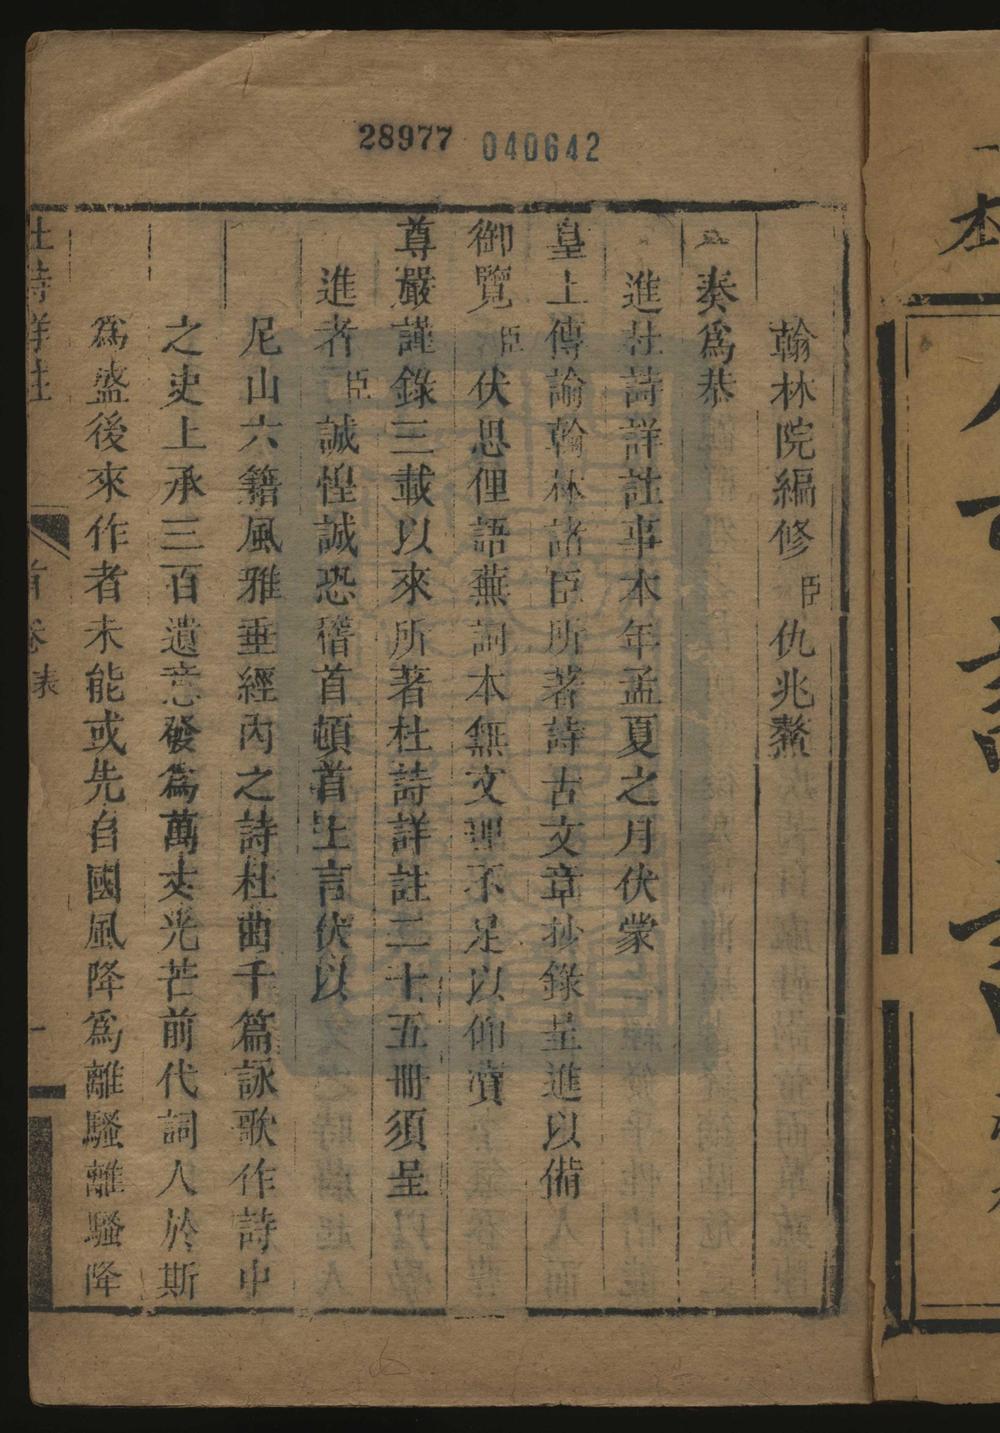 28977 040642
翰林院編修臣仇兆鰲
奏為恭
進杜詩詳註事本年孟夏之月伏蒙
皇上傳諭翰林諸臣所著詩古文章抄錄呈進以備
御覽臣伏思俚語蕪詞本無文理不足以仰瀆
尊嚴謹錄三載以來所著杜詩詳註二十五冊須呈
進者臣誠惶誠恐稽首頓首上言伏以
尼山六籍風雅垂經內之詩杜曲千篇詠歌作詩中
之史上承三百遺意發為萬丈光芒前代詞人於斯
為盛後來作者未能或先自國風降為離騷離騷降
杜詩詳註
首卷 表
一